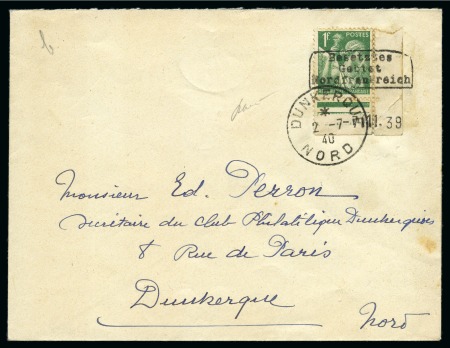 b
1F POSTES
Besetztes
Gebiet
Nordfrankreich
DUNKERQUE
2 -7- 11.39
40
NORD
Monsieur Ed. Perron
Secrétaire du Club Philatélique Dunkerquois
8 Rue de Paris
Dunkerque
Nord